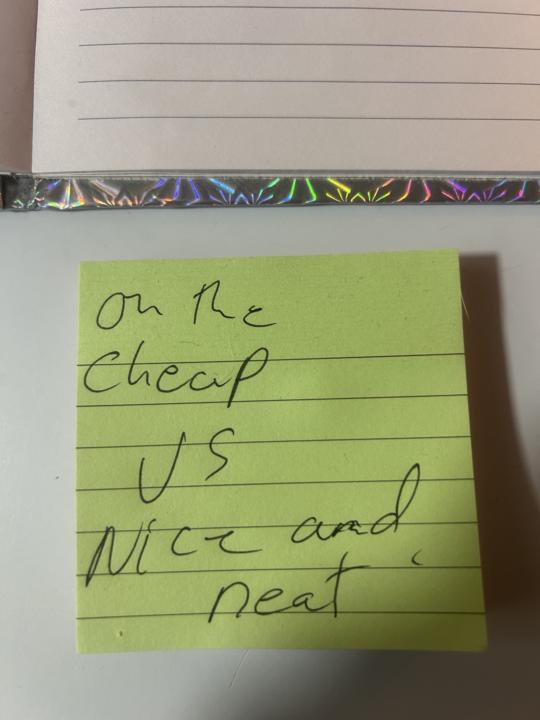 on the
cheap
VS
Nice and
neat